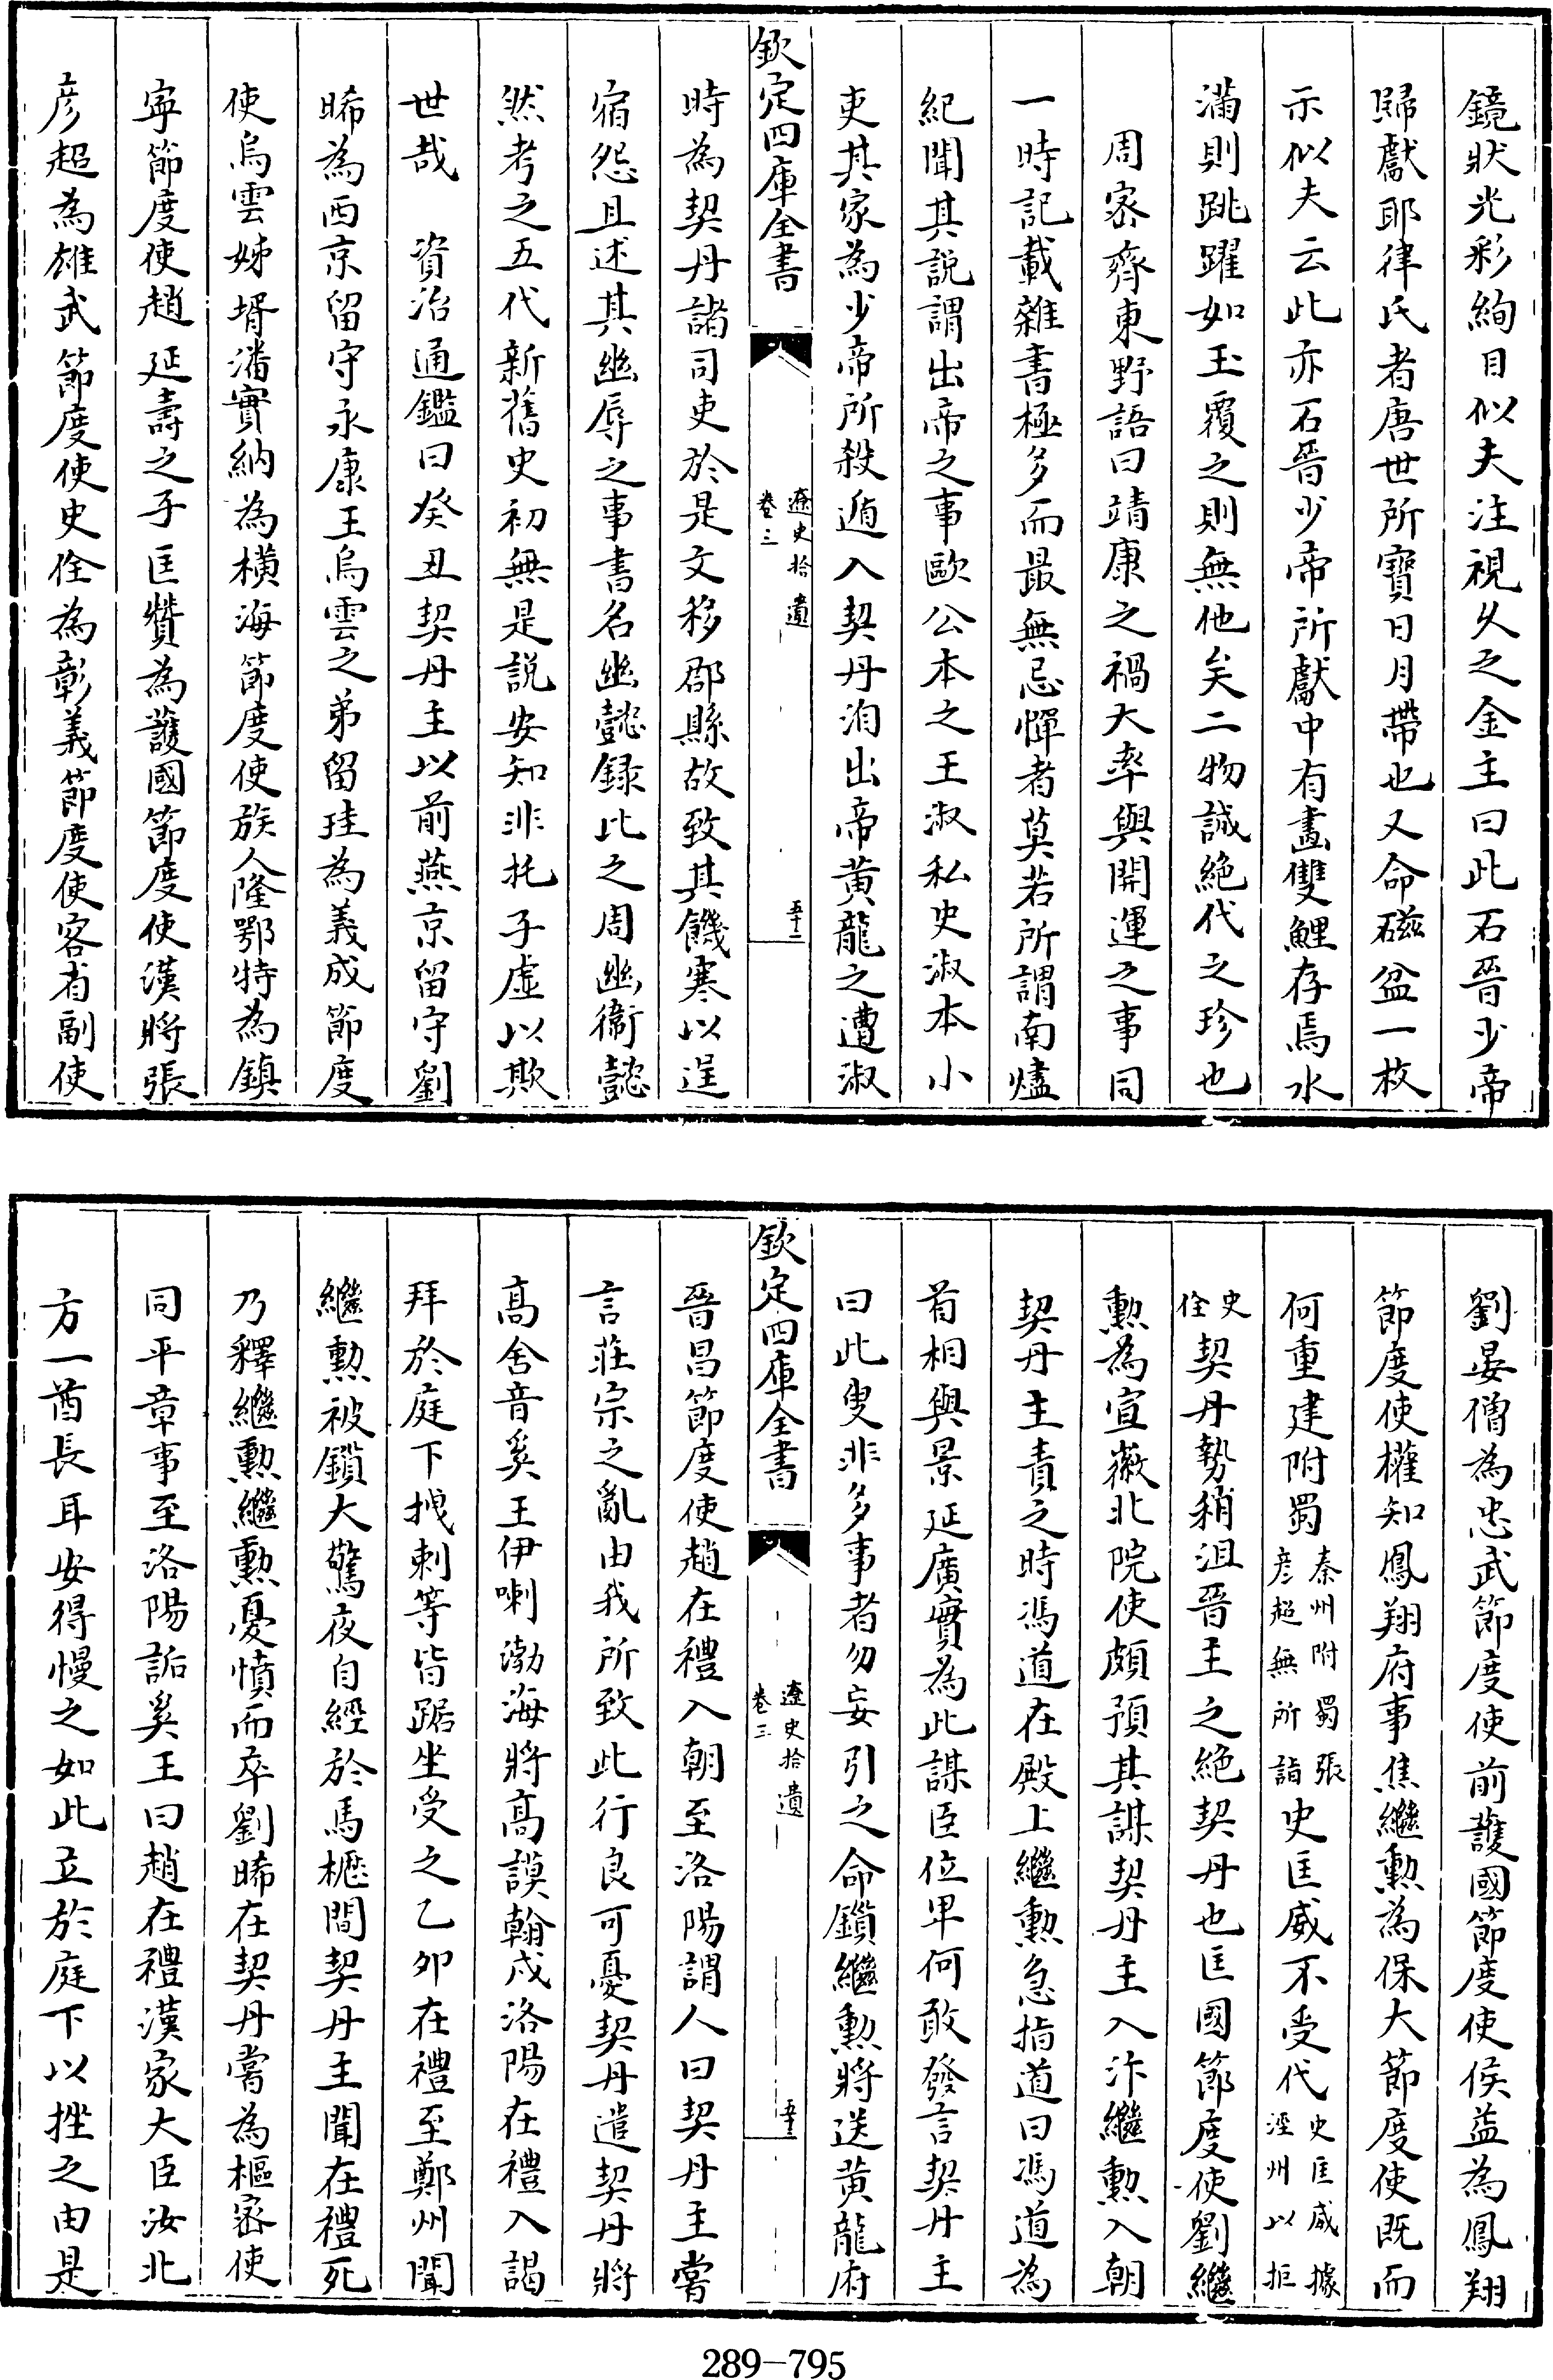 鏡狀光彩絢目似夫注視久之金主曰此石晉少帝
歸獻耶律氏者唐世所寶日月帶也又命磁盆一枚
示似夫云此亦石晉少帝所獻中有畫雙鯉存焉水
滿則跳躍如玉覆之則無他矣二物誠絶代之珍也
周宻齊東野語曰靖康之禍大率與開運之事同
一時記載雜書極多而最無忌憚者莫若所謂南燼
紀聞其說謂出帝之事歐公本之王淑私史淑本小
吏其家為少帝所殺遁入契丹洎出帝黄龍之遭淑
欽定四庫全書
遼史拾遺
卷三
五十二
時為契丹諸司吏於是文移郡縣故致其饑寒以逞
宿怨且述其幽辱之事書名幽懿録比之周幽衞懿
然考之五代新舊史初無是説安知非托子虛以欺
世哉　資治通鑑曰癸丑契丹主以前燕京留守劉
晞為西京留守永康王烏雲之弟留珪為義成節度
使烏雲姊壻潘實納為横海節度使族人隆鄂特為鎮
寜節度使趙延壽之子匡贊為護國節度使漢將張
彦超為雄武節度使史佺為彰義節度使客省副使
劉晏僧為忠武節度使前護國節度使侯益為鳳翔
節度使權知鳳翔府事焦繼勲為保大節度使既而
何重建附蜀秦州附蜀張彦超無所詣史匡威不受代史匡威據涇州以拒
史佺契丹勢稍沮晉主之絶契丹也匡國節度使劉繼
勲為宣徽北院使頗預其謀契丹主入汴繼勲入朝
契丹主責之時馮道在殿上繼勲急指道曰馮道為
首相與景延廣實為此謀臣位卑何敢發言契丹主
曰此叟非多事者勿妄引之命鎖繼勲將送黄龍府
欽定四庫全書
遼史拾遺
卷三
五十三
晉昌節度使趙在禮入朝至洛陽謂人曰契丹主嘗
言莊宗之亂由我所致此行良可憂契丹遣契丹將
髙舍音奚王伊喇渤海將髙謨翰戍洛陽在禮入謁
拜於庭下拽剌等皆踞坐受之乙卯在禮至鄭州聞
繼勲被鎖大驚夜自經於馬櫪間契丹主聞在禮死
乃釋繼勲繼勲憂憤而卒劉晞在契丹嘗為樞宻使
同平章事至洛陽詬奚王曰趙在禮漢家大臣汝北
方一酋長耳安得慢之如此立於庭下以挫之由是
289-795